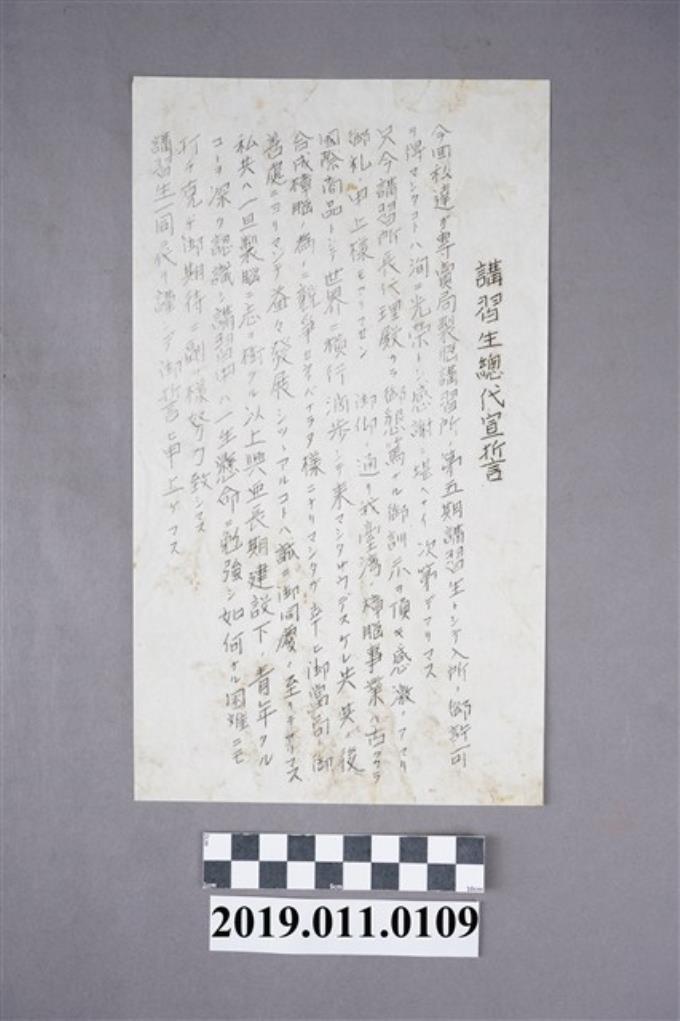 講習生總代宣誓
今回私達ガ專賣局製腦講習所ノ第五期講習生トシテ入所ノ御許可
ヲ得マシタコトハ洵ニ光榮トシ感謝ニ堪ヘナイ次第デアリマス
只今講習所長代理殿カラ御懇篤ナル御訓示ヲ頂キ感激ノアマリ
御礼ノ申上様モアリマセン 御仰ノ通リ我臺湾ノ樟腦事業ハ古クカラ
國際商品トシテ世界ニ横行濶歩シテ来マシタサウデスケレ共其ノ後
合成樟腦ノ為ニ競争 様ニナリマシタガ幸ヒ御當局ノ御
善處ニヨリマシテ益々發展シツヽアルコトハ誠ニ御同慶ノ至リデアリマス
私共ハ一旦製腦ニ志ヲ樹タル以上興亜長期建設下ノ青年タル
コトヲ深ク認識シ講習中ハ一生懸命ニ勉強シ如何ナル困難ニモ
打チ克チ御期待ニ副フ様努力致シマス
講習生一同ニ代リ謹ンデ御誓ヒ申上ゲマス
5cm
10cm
2019.011.0109